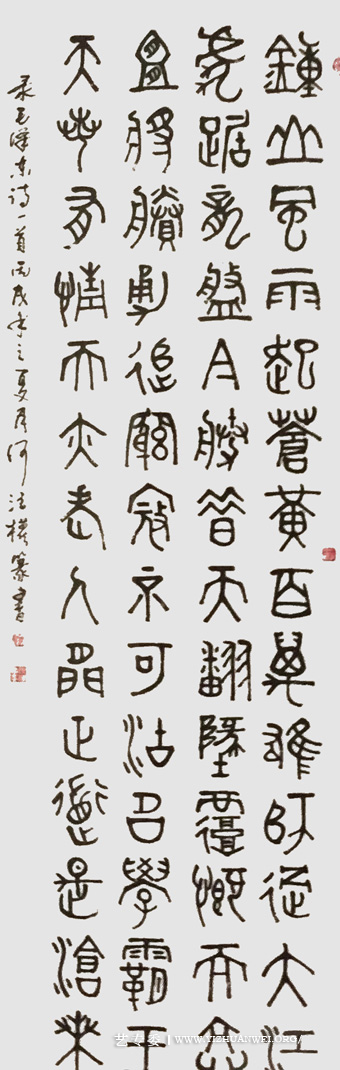 鍾山風雨起蒼黃百萬雄師過大江
虎踞龍盤今勝昔天翻墬覆慨而慷
宜將賸勇追窮寇不可沽名學霸王
天若有情天亦老人間正道是滄桑
录毛澤東詩一首丙戌年之夏月何法篆書
艺专委 | WWW.YIZHUANWEI.ORG/